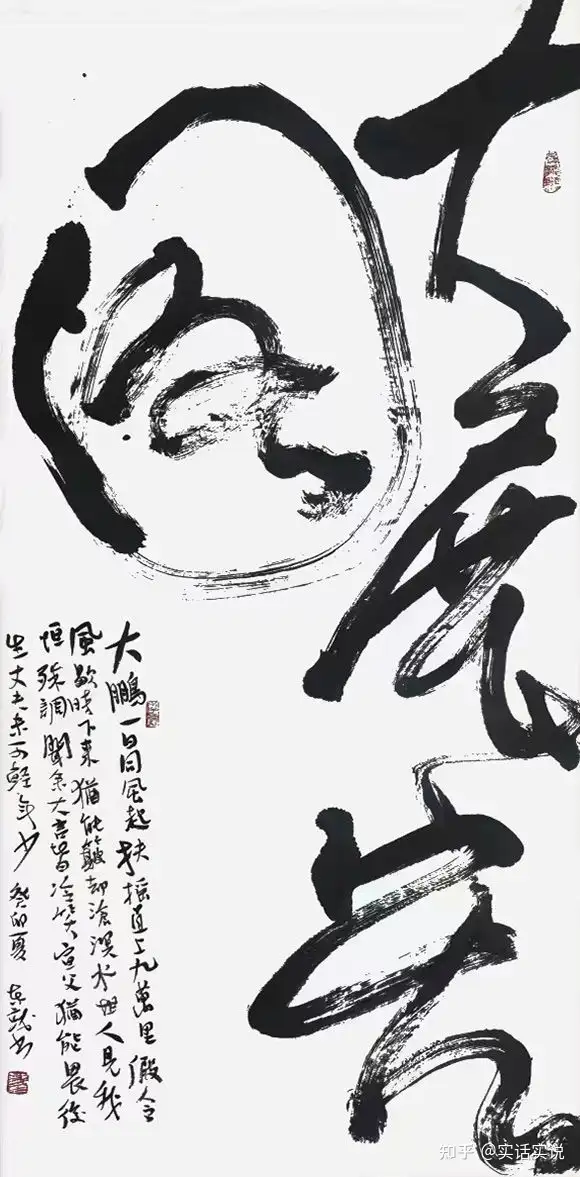 大展宏
图
大鵬一日同風起扶摇直上九萬里假令
風歇時下来猶能簸却滄溟水世人見我
恒殊調聞余大言皆冷笑宣父猶能畏後
生丈夫未可輕年少 癸卯夏
知乎 @实话实说